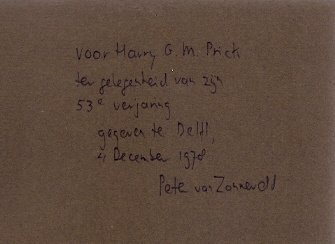 voor Harry G. M. Prick
ter gelegenheid van zijn
53e verjaring
gegeven te Delft,
4 December 1978
Peter van Zonneveld